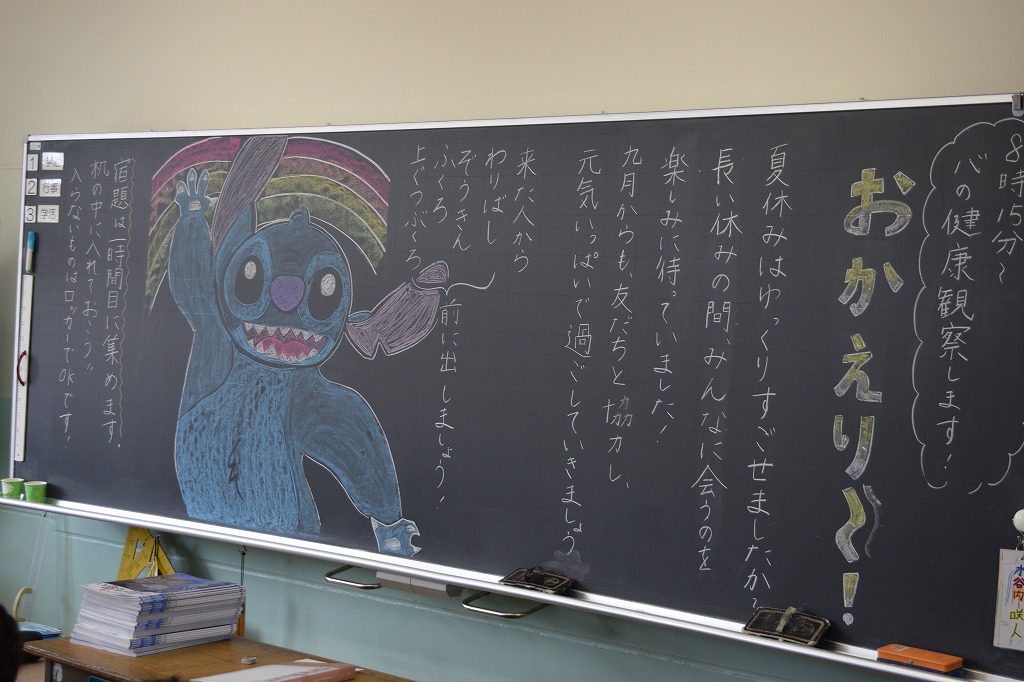 8時15分～
心の健康観察します！
おかえり～！
夏休みはゆっくりすごせましたか？
長い休みの間、みんなに会うのを
楽しみに待っていました！
九月からも、友だちと協力し、
元気いっぱいで過ごしていきましょう
来た人から
わりばし
ぞうきん
ふくろ
上ぐつぶくろ
前に出しましょう！
宿題は一時間目に集めます。
机の中に入れておこう"
入らないものはロッカーでOKです！
1
2 行事
3 学活
水谷内 咲人